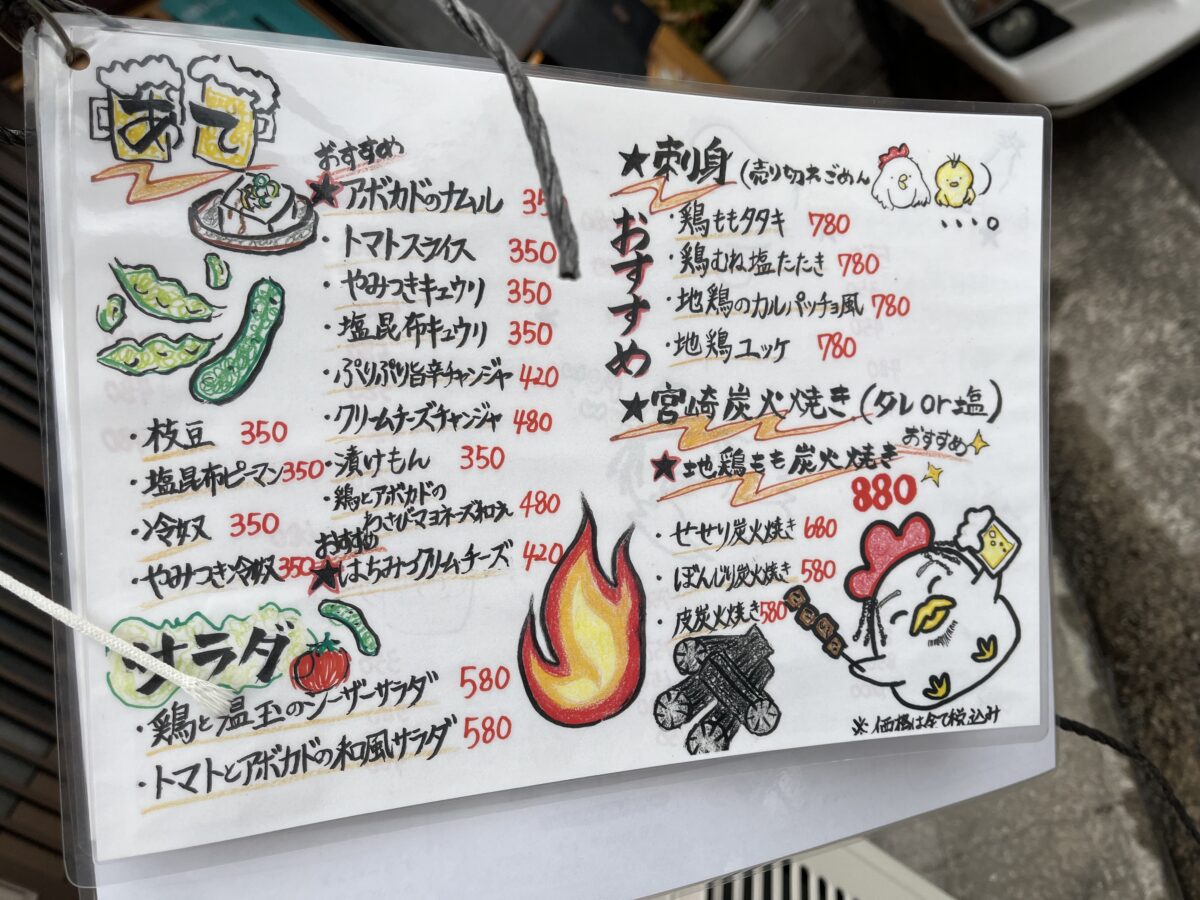 あて
おすすめ
★アボカドのナムル 350
・トマトスライス 350
・やみつきキュウリ 350
・塩昆布キュウリ 350
・ぷりぷり旨辛チャンジャ 420
・クリームチーズチャンジャ 480
・漬けもん 350
・鶏とアボカドの
わさびマヨネーズ和え 480
おすすめ
★はちみつクリームチーズ 420
・枝豆 350
・塩昆布ピーマン 350
・冷奴 350
・やみつき冷奴 350
サラダ
・鶏と温玉のシーザーサラダ 580
・トマトとアボカドの和風サラダ 580
★刺身 (売り切れごめん
)
...。
おすすめ
・鶏ももタタキ 780
・鶏むね塩たたき 780
・地鶏のカルパッチョ風 780
・地鶏ユッケ 780
★宮崎炭火焼き (タレor塩)
おすすめ
★地鶏もも炭火焼き
880
・せせり炭火焼き 680
・ぼんじり炭火焼き 580
・皮炭火焼き 580
※価格は全て税込み